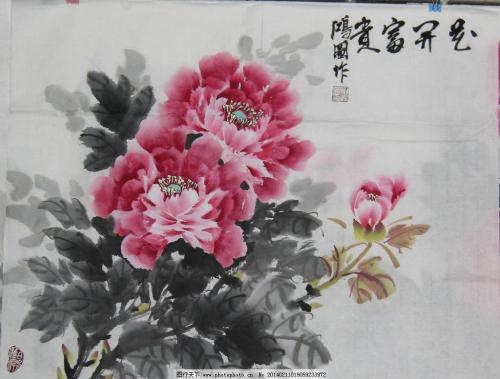 花开富貴
鴻作
图行天下 photophoto.cn No.20140211019059233972